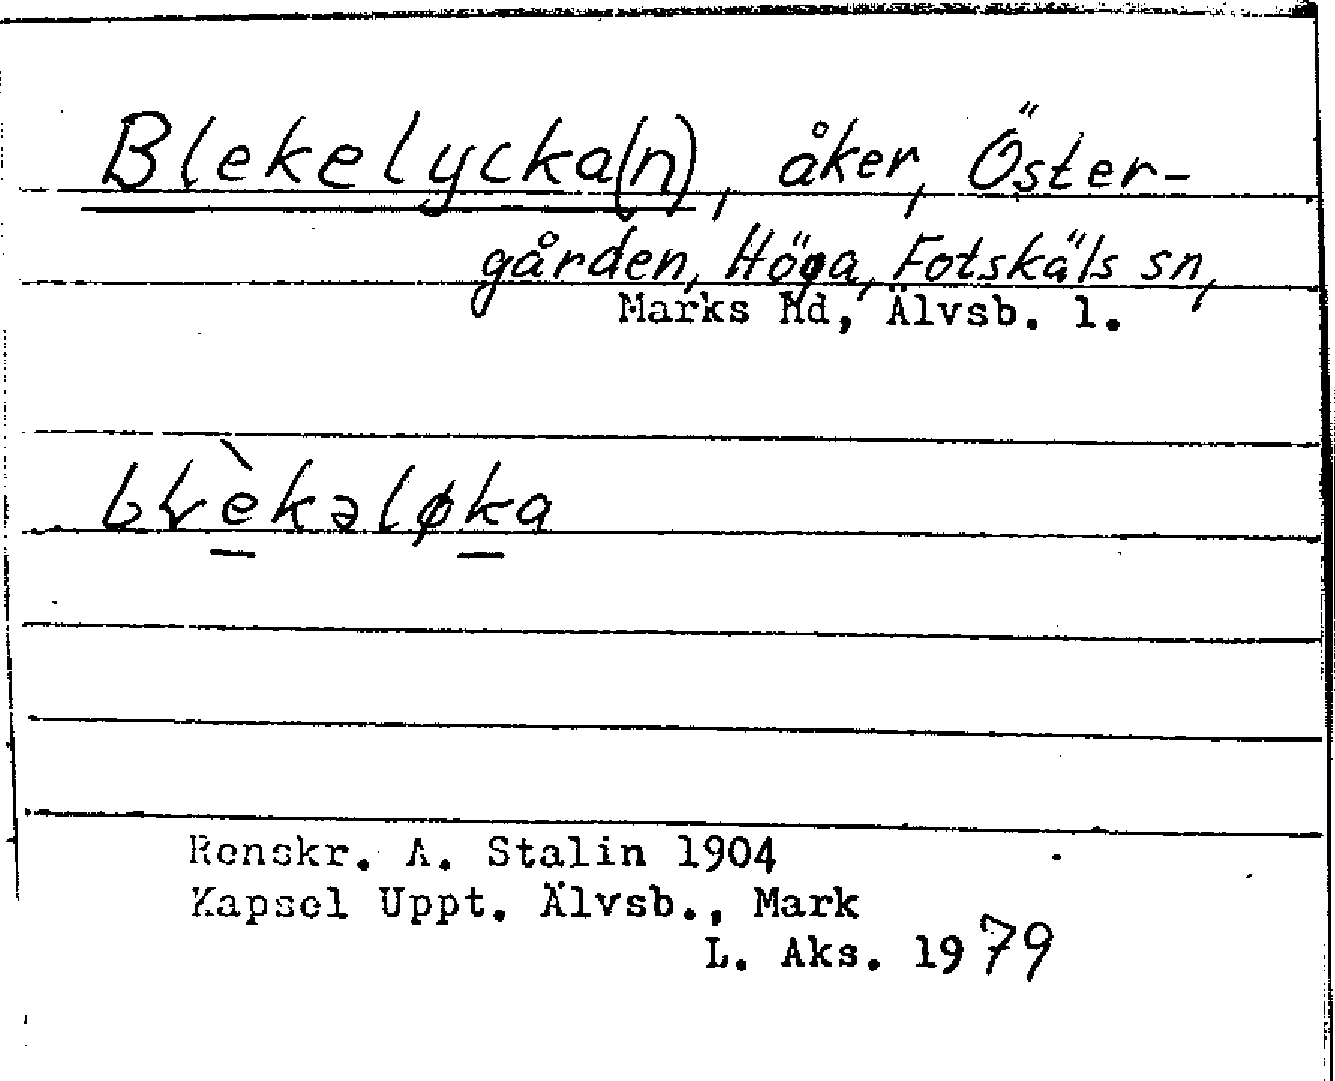 Blekelycka(n), åker, Öster-
gården, Höga, Fotskäls sn,
Marks hd, Älvsb. l.
Renskr. A. Stalin 1904
Kapsel Uppt. Älvsb., Mark
L. Aks. 1979